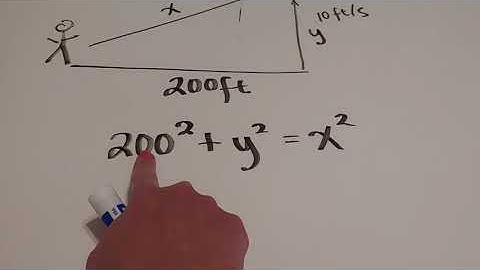 x
10ft/s
y
200ft
200² + y² = x²